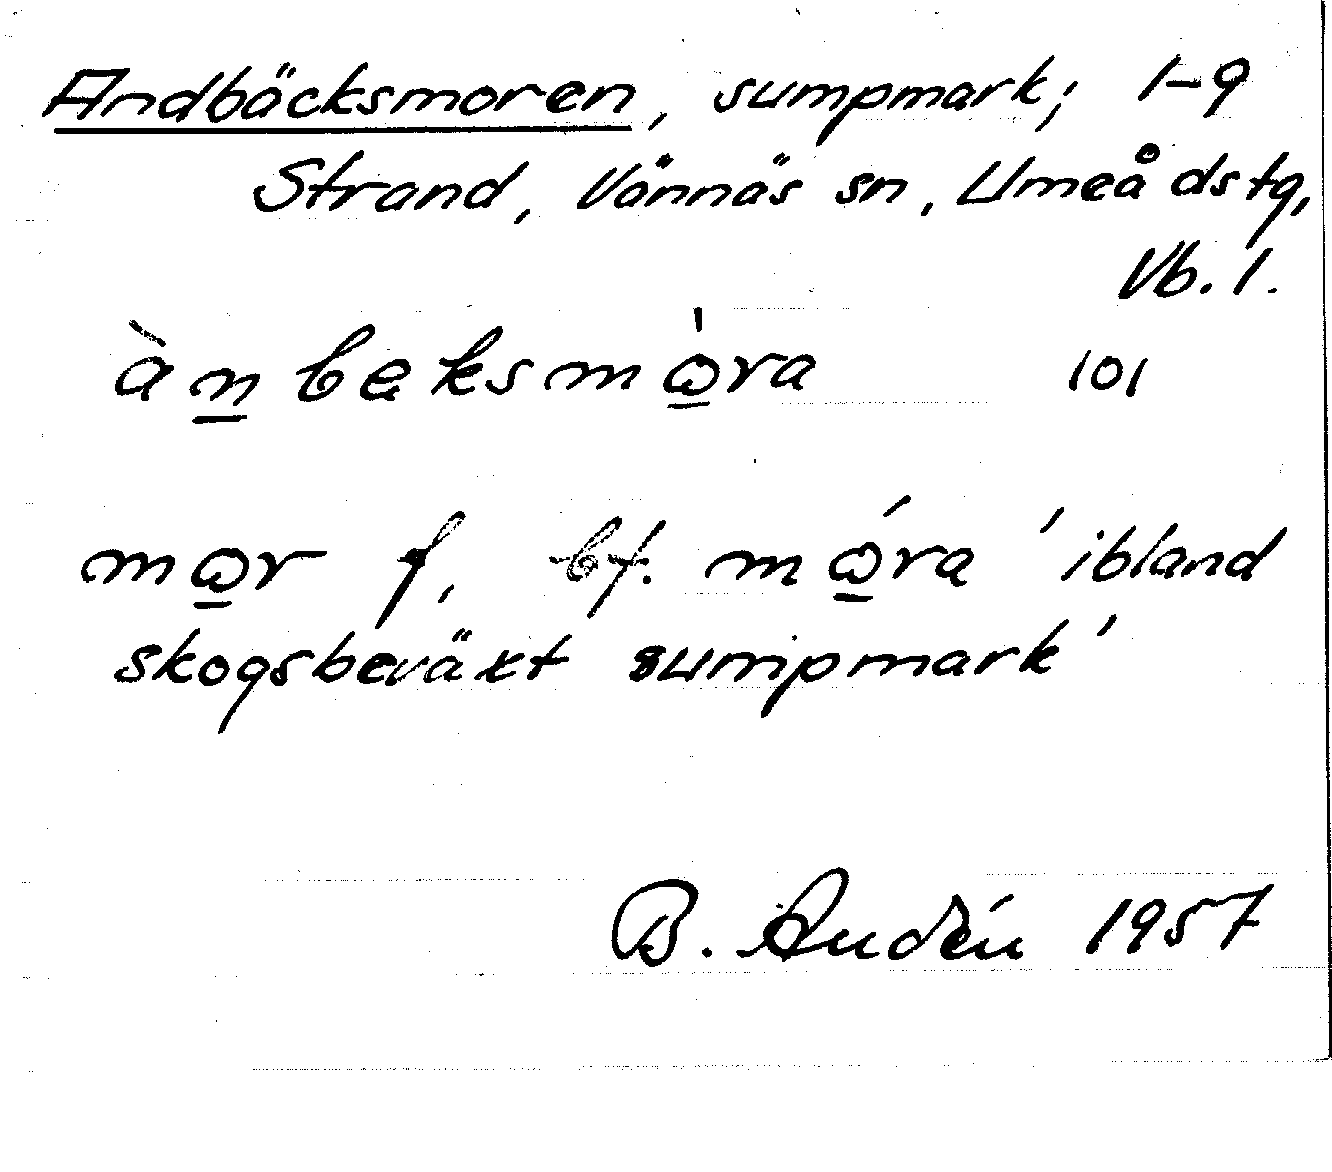 Andbäcksmoren, sumpmark; 1-9
Strand, Vännäs sn, Umeå dstg,
Vb. l.
àn̲bęksmὼ̲ra 101
mω̲r f, bf. mώ̲ra 'ibland
skogsbeväxt sumpmark'
B. Audén 1957